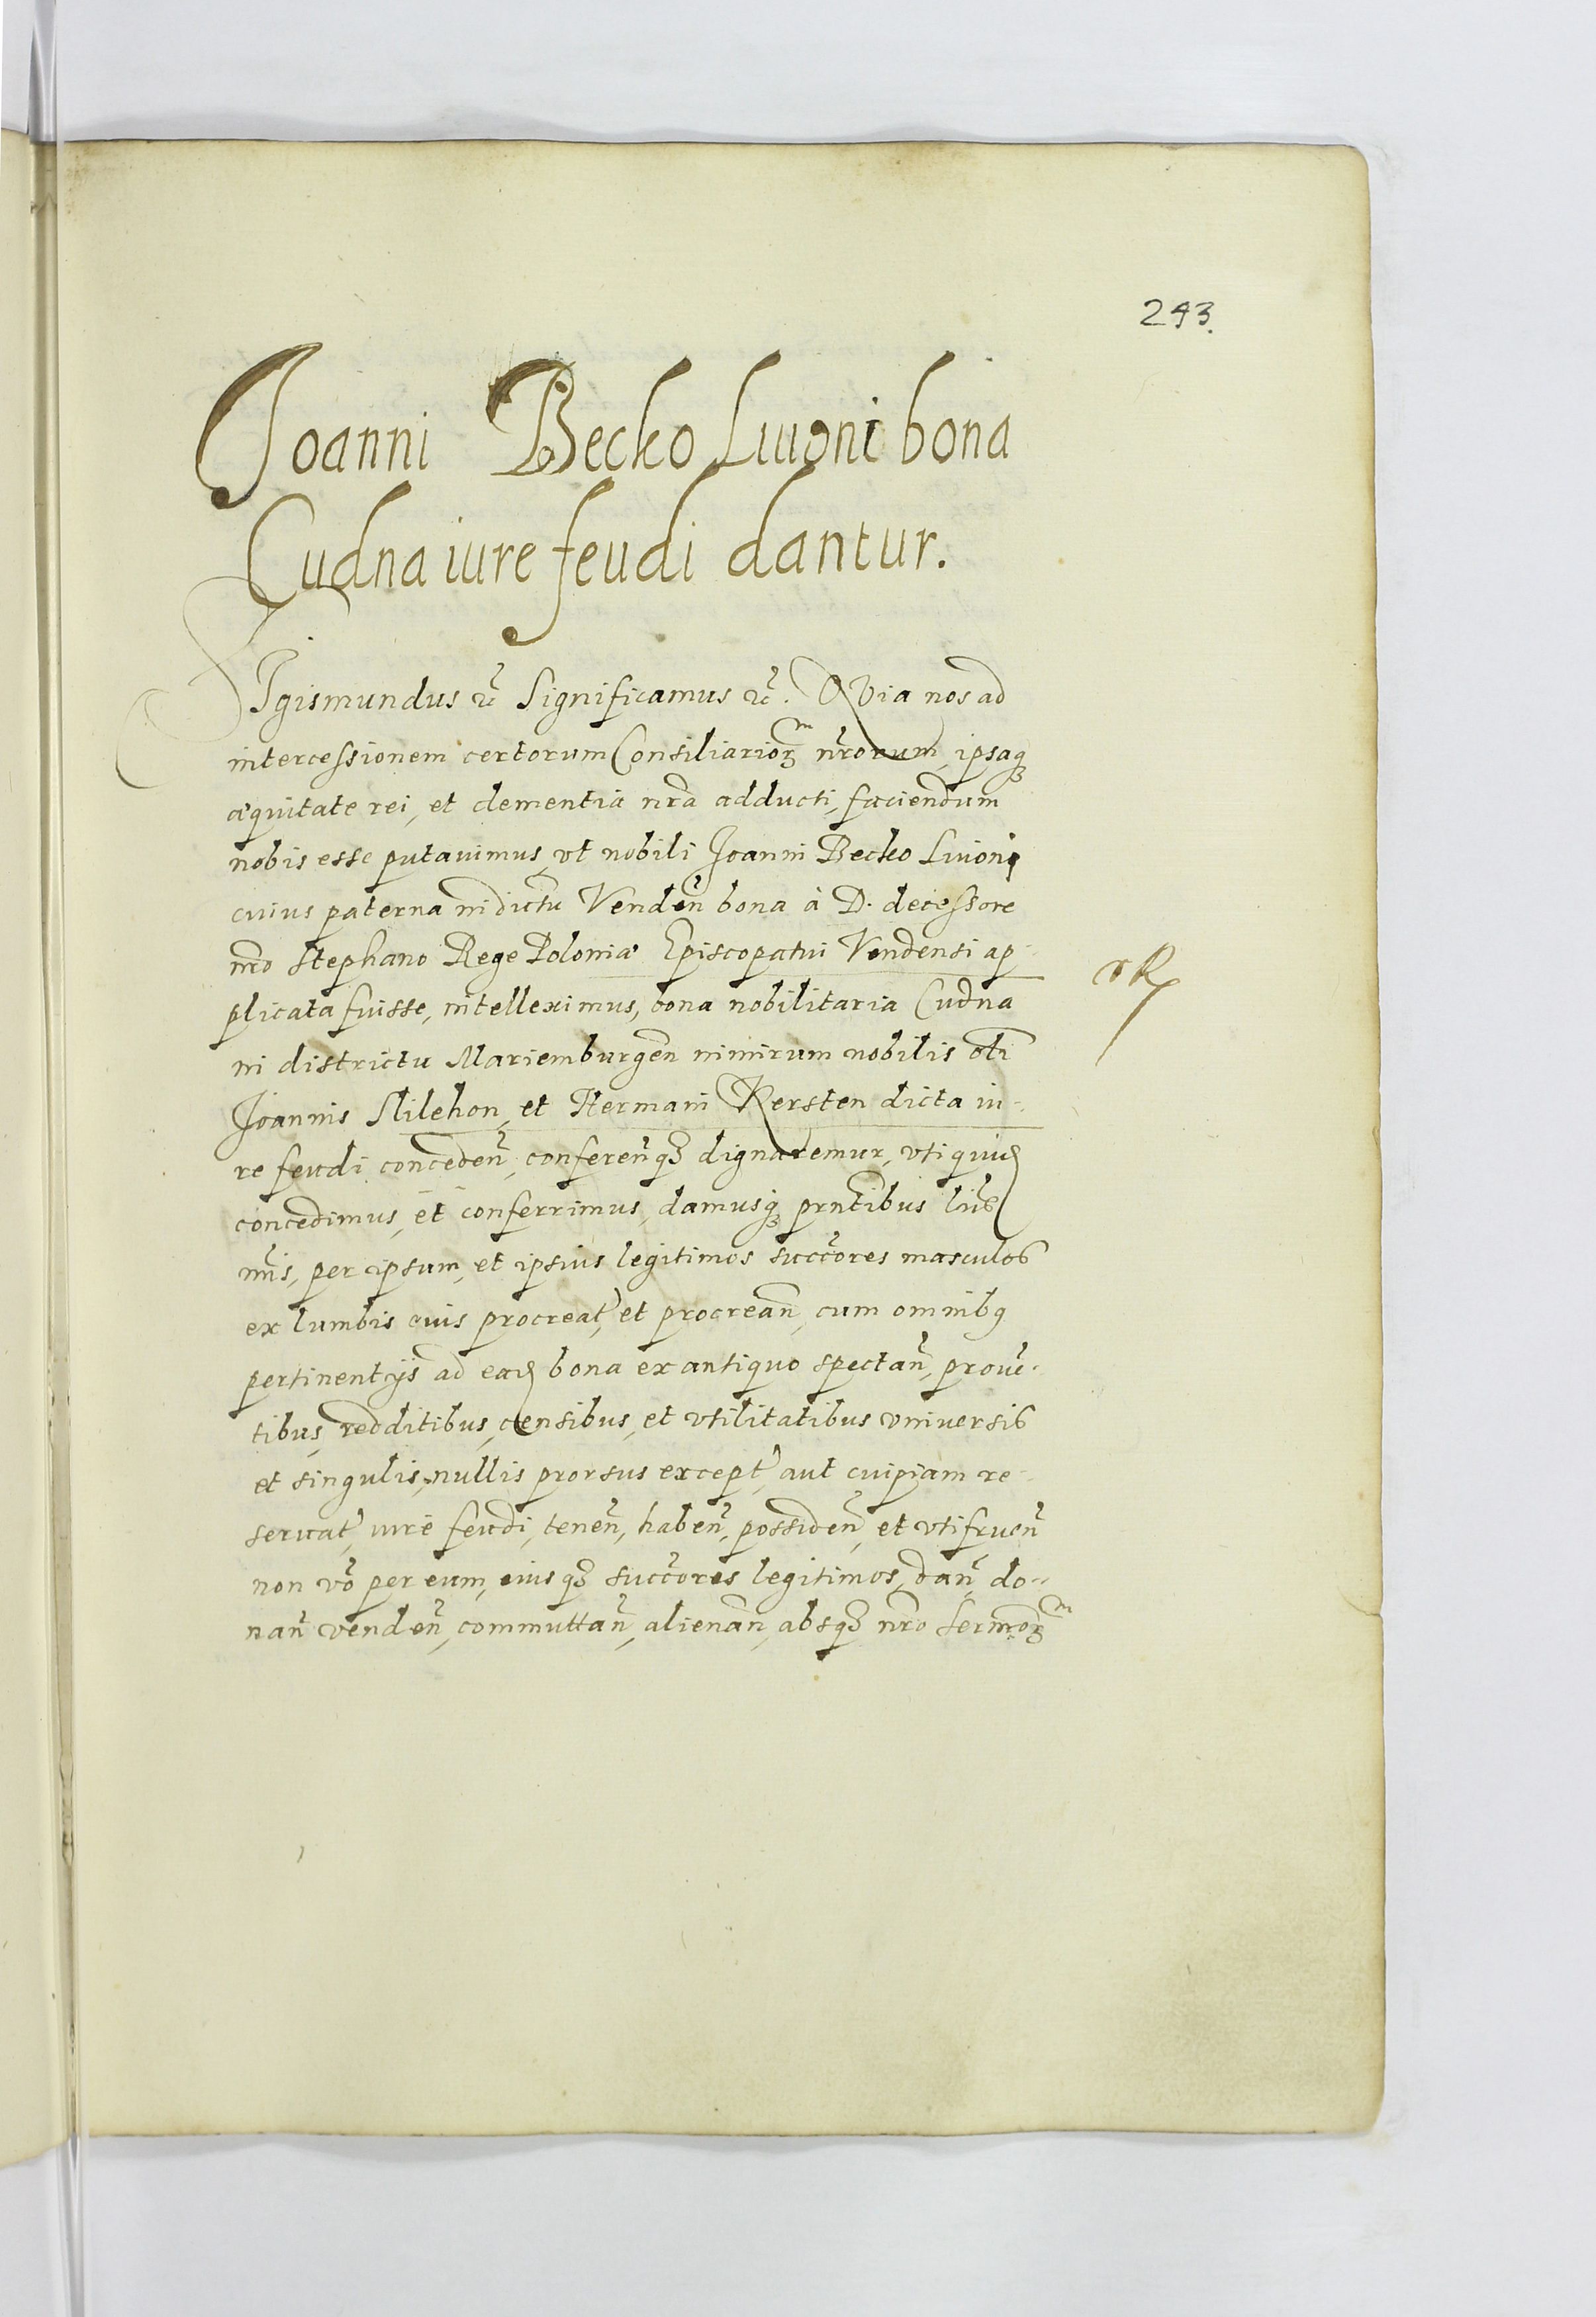 243.
Joanni Becko Liuoni bona
Cudna iure feudi dantur.
SIgismundus ꝛc̃ Significamus ꝛc̃. QVia nos ad
intercessionem certorum Consiliarioꝝm nr̃orum, ipsaqꝫ
æquitate rei, et clementia nrã adducti, faciendum
nobis esse putauimus, vt nobili Joanni Becko Liuoni
cuius paterna in dictu Venden̄ bona à D. decessore
nrõ Stephano Rege Poloniæ Episcopatui Vendensi ap-
plicata fuisse, intelleximus, bona nobilitaria Cudna
in districtu Mariemburgen̄ nimirum nobilis oli͂
Joannis Nilehon, et Hermani Kersten dicta iu-
re feudi conceden̄, conferen̄qꝫ dignaremur, vti quiđ
concedimus, et conferrimus, damusqꝫ prñtibus lr̃is
nr̃is, per ipsum, et ipsius legitimos succc̃ores masculos
ex lumbis euis procreat̃, et procrean̄, cum omnibꝯ
pertinentijs ad eađ bona ex antiquo spectan̄, prouẽ-
tibus, redditibus, censibus, et vtilitatibus vniuersis
et singulis, nullis prorsus except̃, aut cuipiam re-
seruat̃, iure feudi, tenen̄, haben̄, possiden̄, et vtifruen̄
non võ per eum, eiusqꝫ succc̃ores legitimos, dan̄, do-
nan̄ venden̄, commuttan̄, alienan̄, absqꝫ nrõ Sermoꝝm